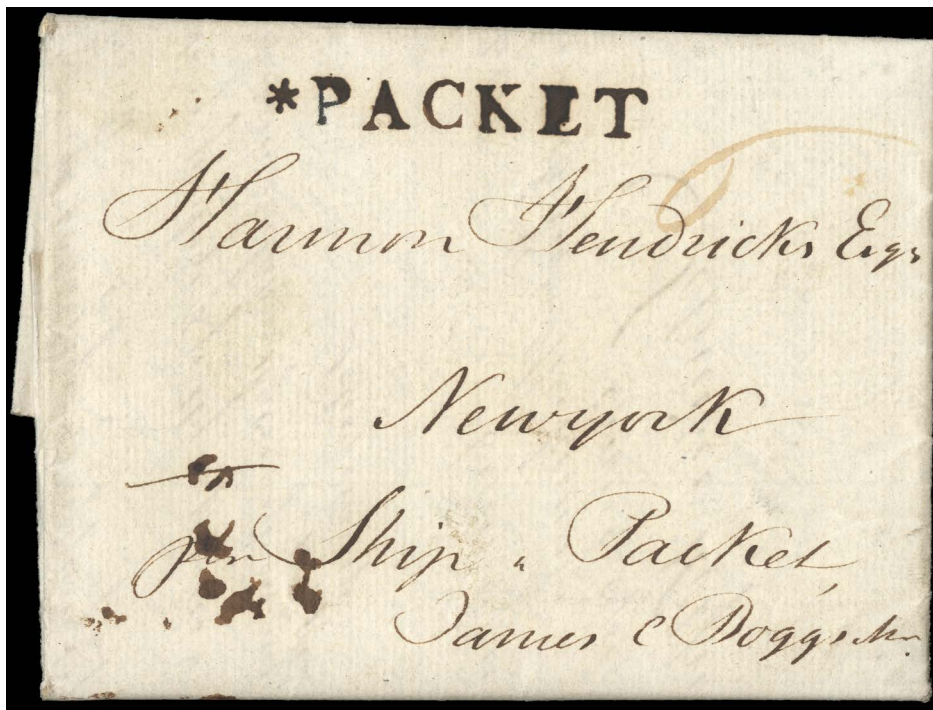 *PACKET
Harmon Hendricks Esqr
Newyork
per Ship "Packet,
James C Boggs Mr.